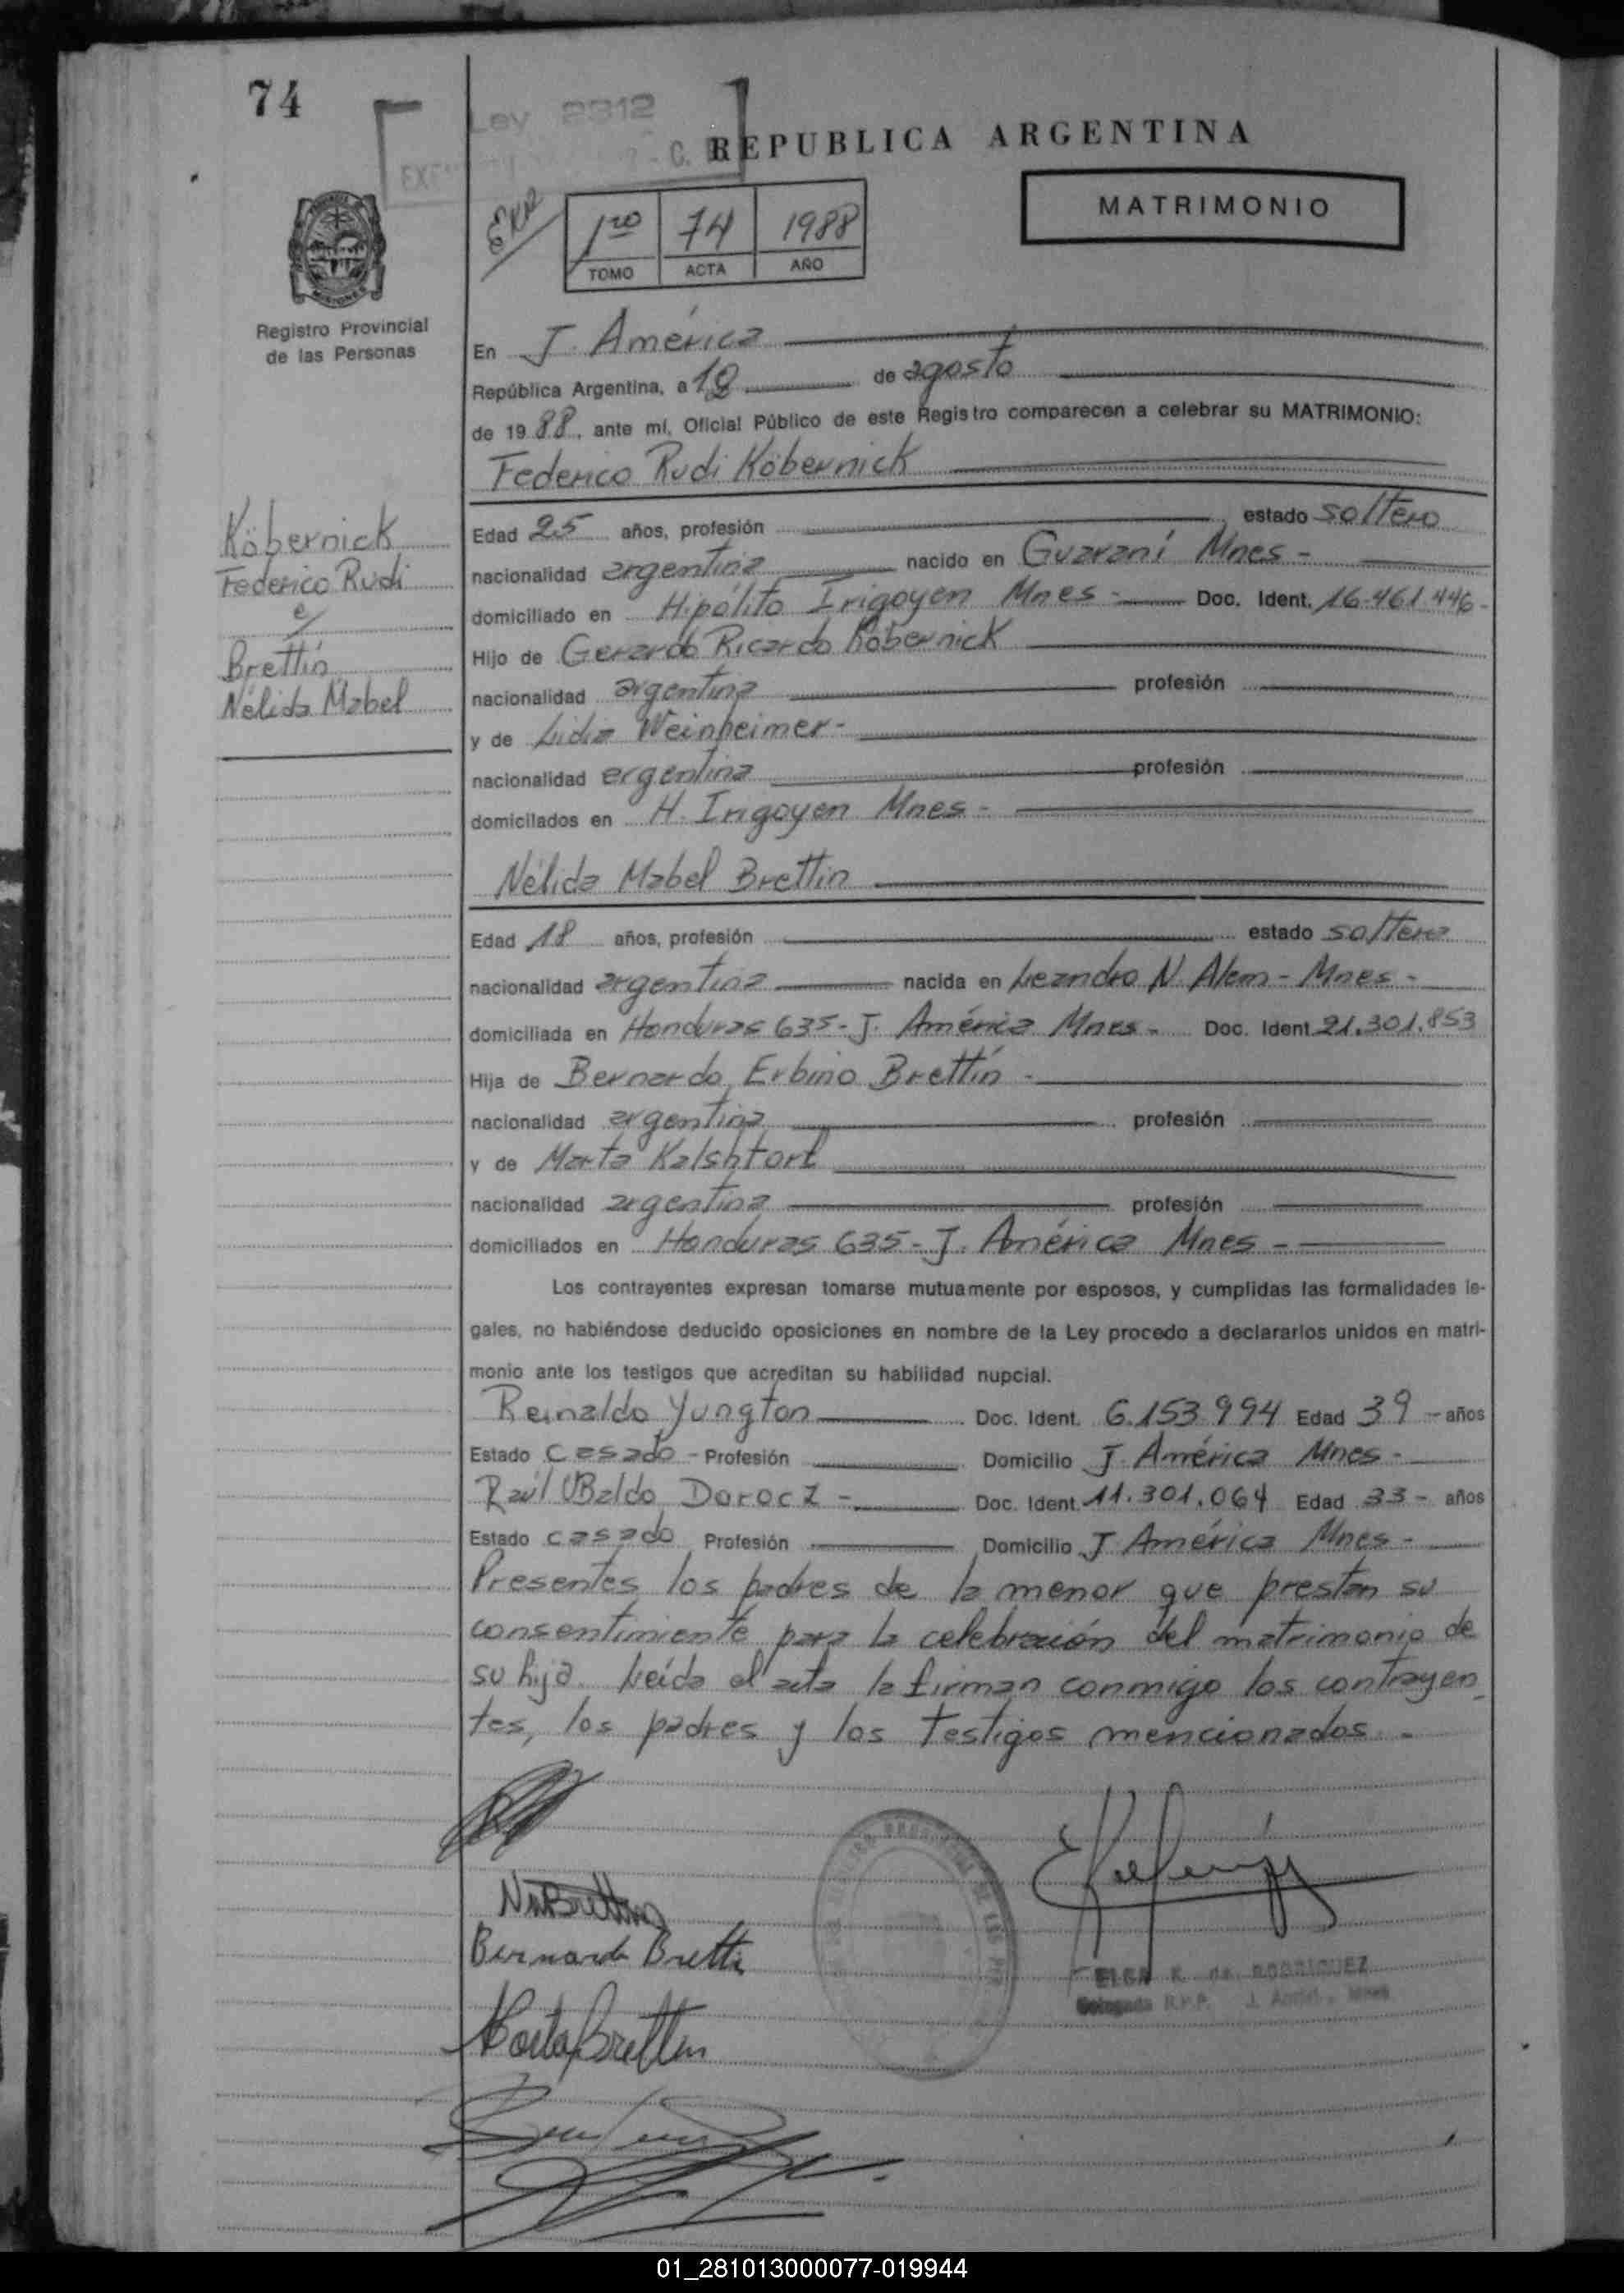 74
Ley 2312
REPUBLICA ARGENTINA
MATRIMONIO
1ro 74 1988
TOMO ACTA AÑO
MISIONES
Registro Provincial
de las Personas
En J. América
República Argentina, a de agosto
de 1988, ante mí, Oficial Público de este Registro comparecen a celebrar su MATRIMONIO:
Federico Rudi Köbernick
Köbernick
Federico Rudi
c/
Brettin
Nélida Mabel
Edad 25 años, profesión estado soltero
nacionalidad argentina nacido en Guaraní Mnes -
domiciliado en Hipólito Irigoyen Mnes - Doc. Ident. 16.461.446 -
Hijo de Gerardo Ricardo Köbernick
nacionalidad argentina profesión
y de Lidia Weinheimer -
nacionalidad argentina profesión
domicilados en H. Irigoyen Mnes -
Nélida Mabel Brettin
Edad 18 años, profesión estado soltera
nacionalidad argentina nacida en Leandro N. Alem - Mnes -
domiciliada en Honduras 635 - J. América Mnes - Doc. Ident. 21.301.853
Hija de Bernardo Erbino Brettin -
nacionalidad argentina profesión
y de Marta Kalshtort
nacionalidad argentina profesión
domiciliados en Honduras 635 - J. América Mnes -
Los contrayentes expresan tomarse mutuamente por esposos, y cumplidas las formalidades le-
gales, no habiéndose deducido oposiciones en nombre de la Ley procedo a declararlos unidos en matri-
monio ante los testigos que acreditan su habilidad nupcial.
Reinaldo Yungton Doc. Ident. 6.153.994 Edad 39 - años
Estado casado - Profesión Domicilio J. América Mnes -
Raúl Ubaldo Dorocz - Doc. Ident. 11.301.064 Edad 33 - años
Estado casado Profesión Domicilio J. América Mnes -
Presentes los padres de la menor que prestan su
consentimiento para la celebración del matrimonio de
su hija. Leída el acta la firman conmigo los contrayen
tes, los padres y los testigos mencionados -
N M Brettin
Bernardo Brettin
Marta Brettin
ELSA K. de RODRIGUEZ
Delegada R.P.P. J. América Mnes
01_281013000077-019944